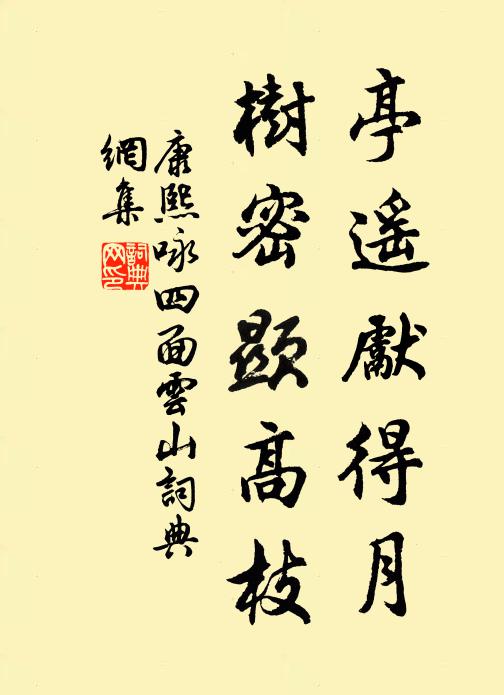 亭遙獻得月
樹密顯高枝
康熙咏四面雲山詞典
網集
詞典網印